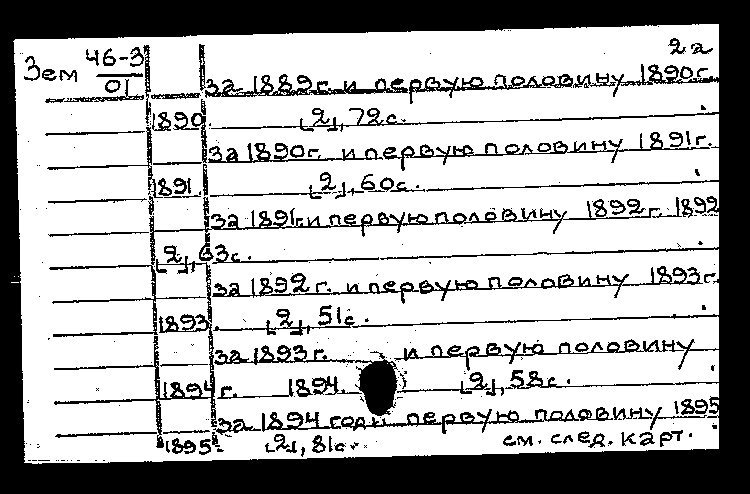 2а
Зем 46-3
01
за 1889г. и первую половину 1890г.
1890. [2], 72с.
за 1890г. и первую половину 1891г.
1891. [2], 60с.
за 1891г. и первую половину 1892г. 1892
[2], 63с.
за 1892г. и первую половину 1893г.
1893. [2], 51с.
за 1893г. и первую половину
1894г. 1894. [2], 58с.
за 1894 год и первую половину 1895
1895. [2], 81с.
см. след. карт.